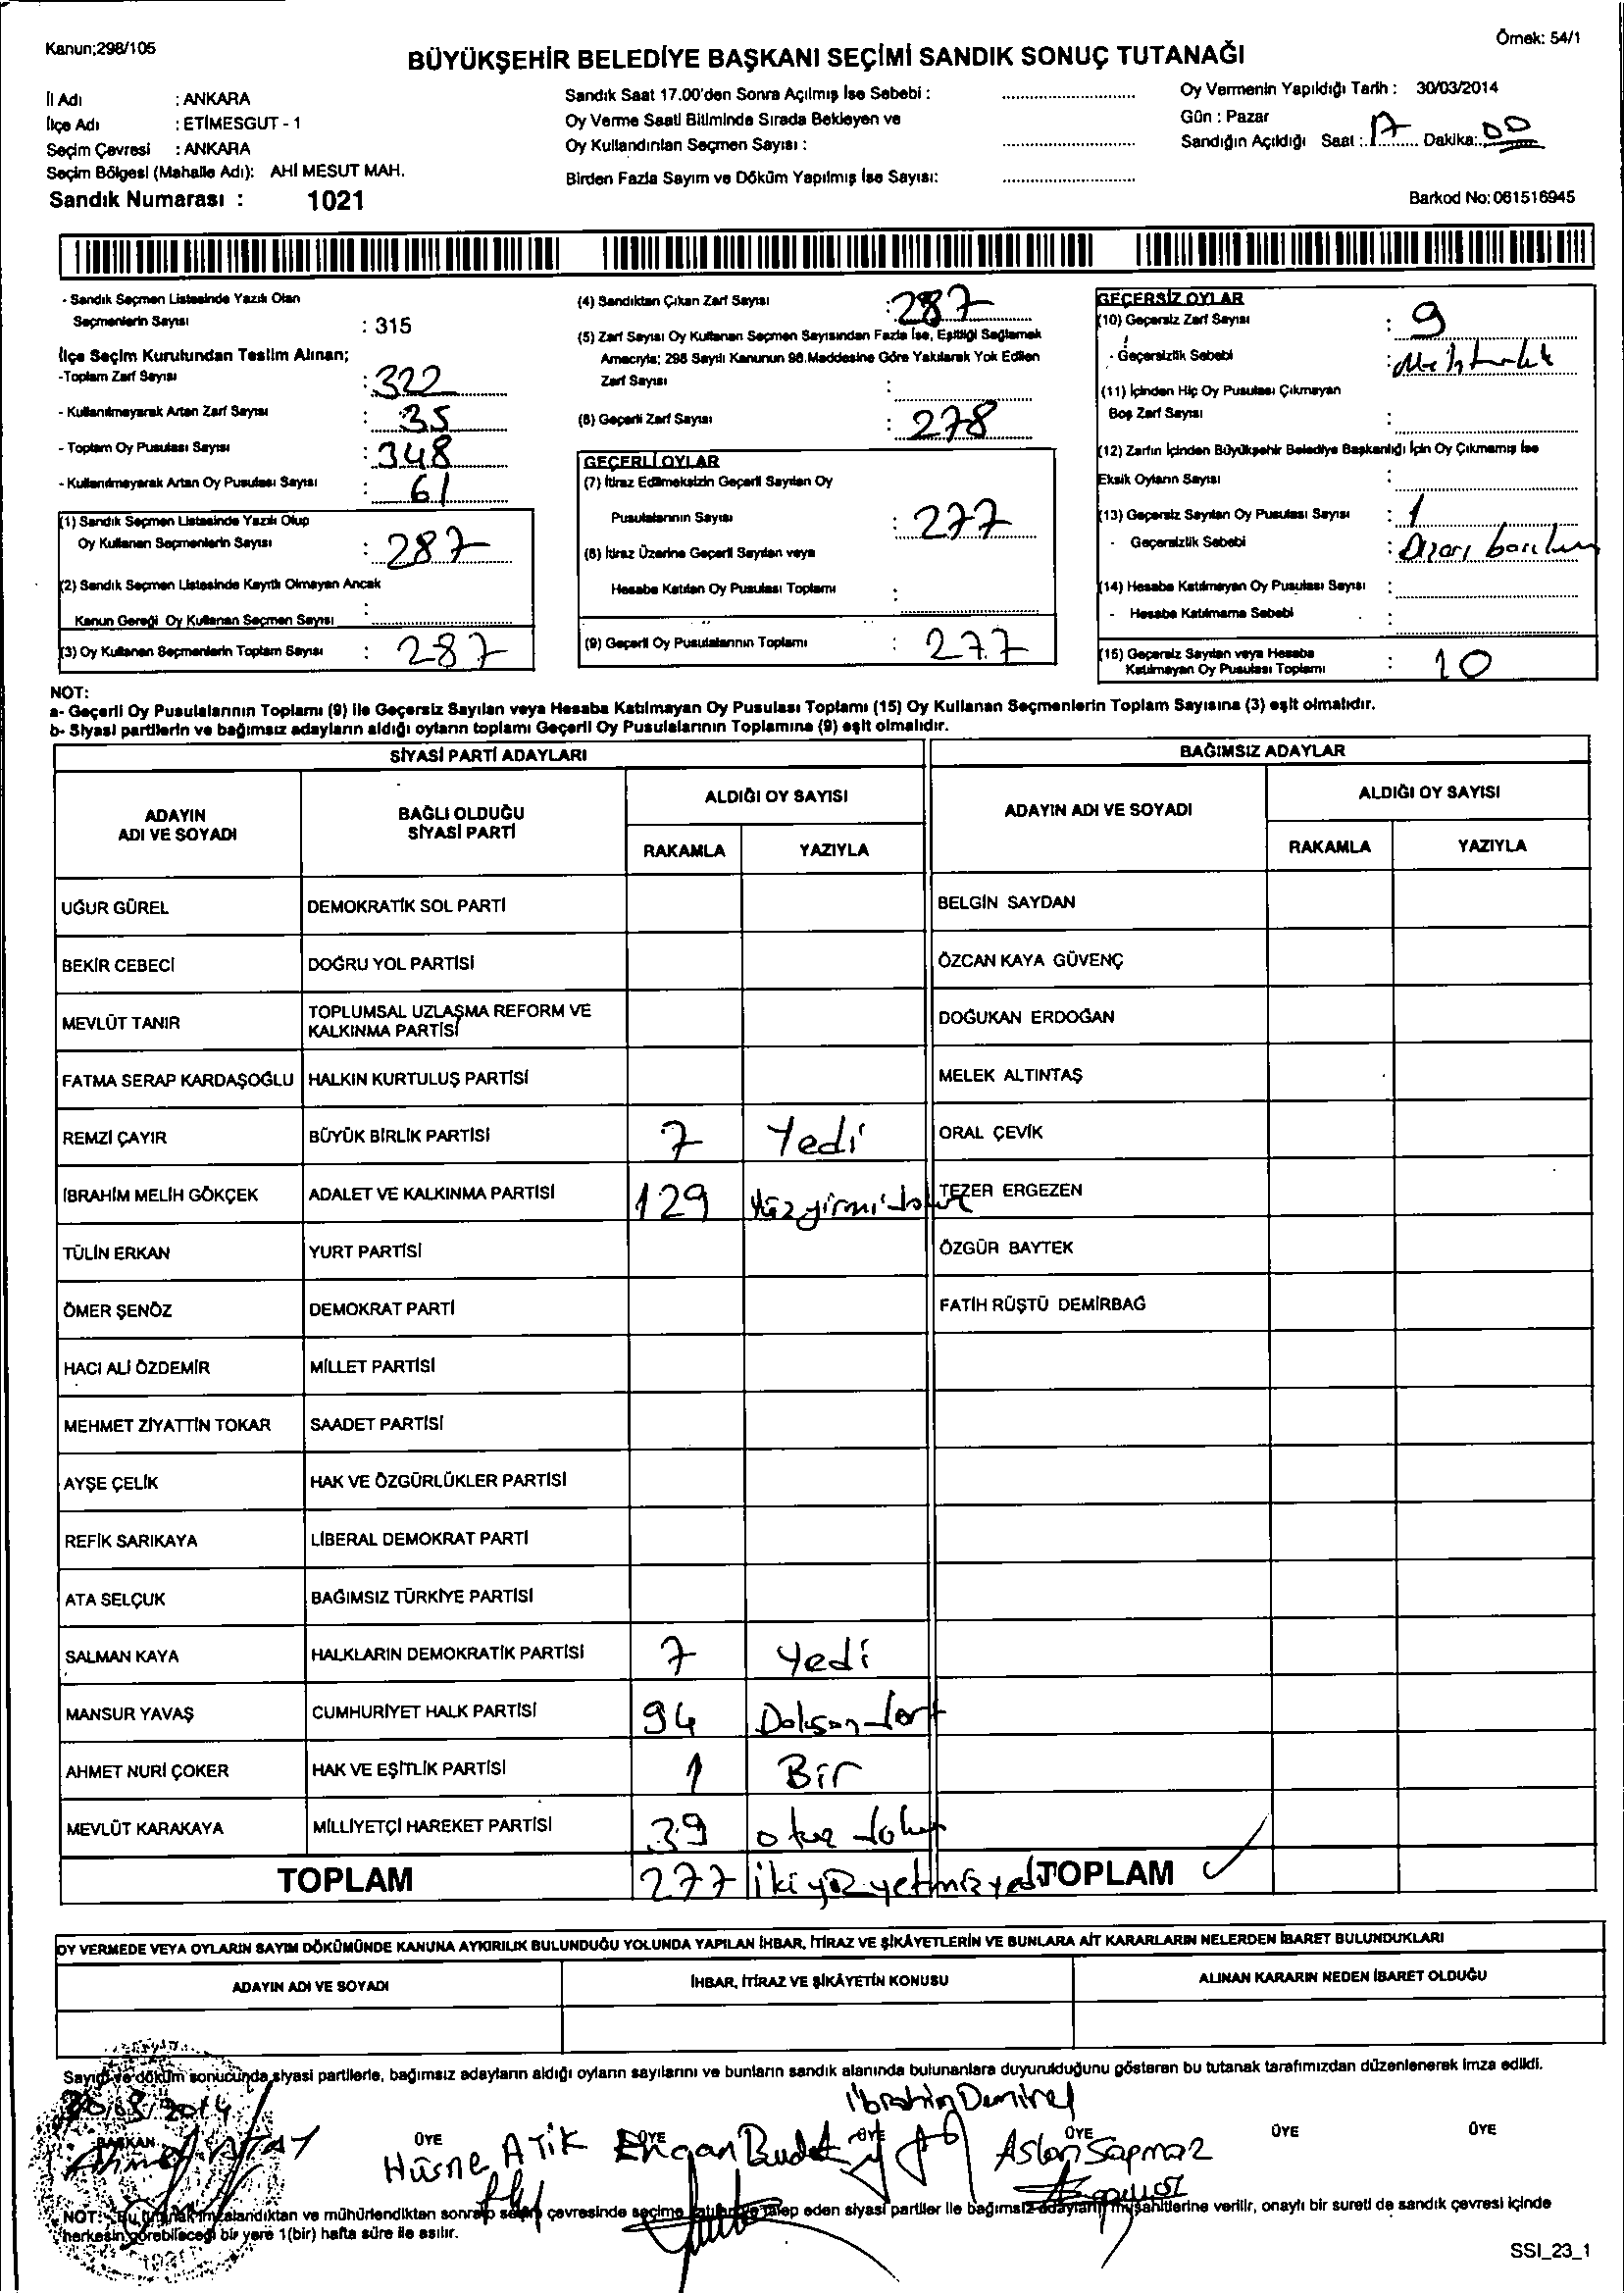 Kanun;298/105
Örnek: 54/1
BÜYÜKŞEHİR BELEDİYE BAŞKANI SEÇİMİ SANDIK SONUÇ TUTANAĞI
İl Adı : ANKARA
İlçe Adı : ETİMESGUT - 1
Seçim Çevresi : ANKARA
Seçim Bölgesi (Mahalle Adı): AHİ MESUT MAH.
Sandık Numarası : 1021
Sandık Saat 17.00'den Sonra Açılmış İse Sebebi :
Oy Verme Saati Bitiminde Sırada Bekleyen ve
Oy Kullandırılan Seçmen Sayısı :
Birden Fazla Sayım ve Döküm Yapılmış İse Sayısı:
Oy Vermenin Yapıldığı Tarih : 30/03/2014
Gün : Pazar
Sandığın Açıldığı Saat : 17 Dakika: 00
Barkod No: 061516945
- Sandık Seçmen Listesinde Yazılı Olan
Seçmenlerin Sayısı : 315
İlçe Seçim Kurulundan Teslim Alınan;
-Toplam Zarf Sayısı : 322
- Kullanılmayarak Artan Zarf Sayısı : 35
- Toplam Oy Pusulası Sayısı : 348
- Kullanılmayarak Artan Oy Pusulası Sayısı : 61
(1) Sandık Seçmen Listesinde Yazılı Olup
Oy Kullanan Seçmenlerin Sayısı : 287
(2) Sandık Seçmen Listesinde Kayıtlı Olmayan Ancak
Kanun Gereği Oy Kullanan Seçmen Sayısı :
(3) Oy Kullanan Seçmenlerin Toplam Sayısı : 287
(4) Sandıktan Çıkan Zarf Sayısı : 287
(5) Zarf Sayısı Oy Kullanan Seçmen Sayısından Fazla İse, Eşitliği Sağlamak
Amacıyla; 298 Sayılı Kanunun 98.Maddesine Göre Yakılarak Yok Edilen
Zarf Sayısı :
(6) Geçerli Zarf Sayısı : 278
GEÇERLİ OYLAR
(7) İtiraz Edilmeksizin Geçerli Sayılan Oy
Pusulalarının Sayısı : 277
(8) İtiraz Üzerine Geçerli Sayılan veya
Hesaba Katılan Oy Pusulası Toplamı :
(9) Geçerli Oy Pusulalarının Toplamı : 277
GEÇERSİZ OYLAR
(10) Geçersiz Zarf Sayısı : 9
- Geçersizlik Sebebi :
(11) İçinden Hiç Oy Pusulası Çıkmayan
Boş Zarf Sayısı :
(12) Zarfın İçinden Büyükşehir Belediye Başkanlığı İçin Oy Çıkmamış İse
Eksik Oyların Sayısı :
(13) Geçersiz Sayılan Oy Pusulası Sayısı : 1
- Geçersizlik Sebebi :
(14) Hesaba Katılmayan Oy Pusulası Sayısı :
- Hesaba Katılmama Sebebi :
(15) Geçersiz Sayılan veya Hesaba
Katılmayan Oy Pusulası Toplamı : 10
NOT:
a- Geçerli Oy Pusulalarının Toplamı (9) ile Geçersiz Sayılan veya Hesaba Katılmayan Oy Pusulası Toplamı (15) Oy Kullanan Seçmenlerin Toplam Sayısına (3) eşit olmalıdır.
b- Siyasi partilerin ve bağımsız adayların aldığı oyların toplamı Geçerli Oy Pusulalarının Toplamına (9) eşit olmalıdır.
SİYASİ PARTİ ADAYLARI BAĞIMSIZ ADAYLAR
ADAYIN
ADI VE SOYADI
BAĞLI OLDUĞU
SİYASİ PARTİ
ALDIĞI OY SAYISI
RAKAMLA YAZIYLA
ADAYIN ADI VE SOYADI
ALDIĞI OY SAYISI
RAKAMLA YAZIYLA
UĞUR GÜREL DEMOKRATİK SOL PARTİ BELGİN SAYDAN
BEKİR CEBECİ DOĞRU YOL PARTİSİ ÖZCAN KAYA GÜVENÇ
MEVLÜT TANIR TOPLUMSAL UZLAŞMA REFORM VE
KALKINMA PARTİSİ DOĞUKAN ERDOĞAN
FATMA SERAP KARDAŞOĞLU HALKIN KURTULUŞ PARTİSİ MELEK ALTINTAŞ
REMZİ ÇAYIR BÜYÜK BİRLİK PARTİSİ 7 Yedi ORAL ÇEVİK
İBRAHİM MELİH GÖKÇEK ADALET VE KALKINMA PARTİSİ 129 Yüzyirmidokuz TEZER ERGEZEN
TÜLİN ERKAN YURT PARTİSİ ÖZGÜR BAYTEK
ÖMER ŞENÖZ DEMOKRAT PARTİ FATİH RÜŞTÜ DEMİRBAĞ
HACI ALİ ÖZDEMİR MİLLET PARTİSİ
MEHMET ZİYATTİN TOKAR SAADET PARTİSİ
AYŞE ÇELİK HAK VE ÖZGÜRLÜKLER PARTİSİ
REFİK SARIKAYA LİBERAL DEMOKRAT PARTİ
ATA SELÇUK BAĞIMSIZ TÜRKİYE PARTİSİ
SALMAN KAYA HALKLARIN DEMOKRATİK PARTİSİ 7 Yedi
MANSUR YAVAŞ CUMHURİYET HALK PARTİSİ 94 Doksandört
AHMET NURİ ÇOKER HAK VE EŞİTLİK PARTİSİ 1 Bir
MEVLÜT KARAKAYA MİLLİYETÇİ HAREKET PARTİSİ 39 otuz dokuz
TOPLAM 277 ikiyüzyetmişyedi TOPLAM
OY VERMEDE VEYA OYLARIN SAYIM DÖKÜMÜNDE KANUNA AYKIRILIK BULUNDUĞU YOLUNDA YAPILAN İHBAR, İTİRAZ VE ŞİKÂYETLERİN VE BUNLARA AİT KARARLARIN NELERDEN İBARET BULUNDUKLARI
ADAYIN ADI VE SOYADI İHBAR, İTİRAZ VE ŞİKÂYETİN KONUSU ALINAN KARARIN NEDEN İBARET OLDUĞU
Sayım ve döküm sonucunda siyasi partilerle, bağımsız adayların aldığı oyların sayılarını ve bunların sandık alanında bulunanlara duyurulduğunu gösteren bu tutanak tarafımızdan düzenlenerek imza edildi.
30/03/2014
İbrahim Demirel
BAŞKAN ÜYE ÜYE ÜYE ÜYE ÜYE ÜYE
Hüsne ATİK Aslan Sapmaz
NOT: Bu tutanak imzalandıktan ve mühürlendikten sonra seçim çevresinde seçime katılan ve talep eden siyasi partiler ile bağımsız adayların müşahitlerine verilir, onaylı bir sureti de sandık çevresi içinde
herkesin görebileceği bir yere 1(bir) hafta süre ile asılır.
SSI_23_1